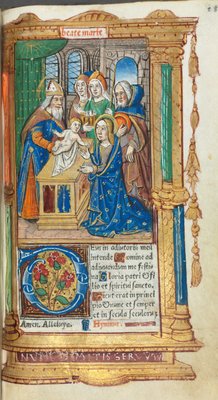 beate marie
Eus in adiutoriũ meũ
intende Domine ad
adiuuandum me festi
na Gloria patri Et fi
lio et spiritui sancto,
Sicut erat in princi
pio Et nunc et semper
et in secula seculorum
Amen, Alleluya. Hymnus.
NVNC DIMITIS SERVVM